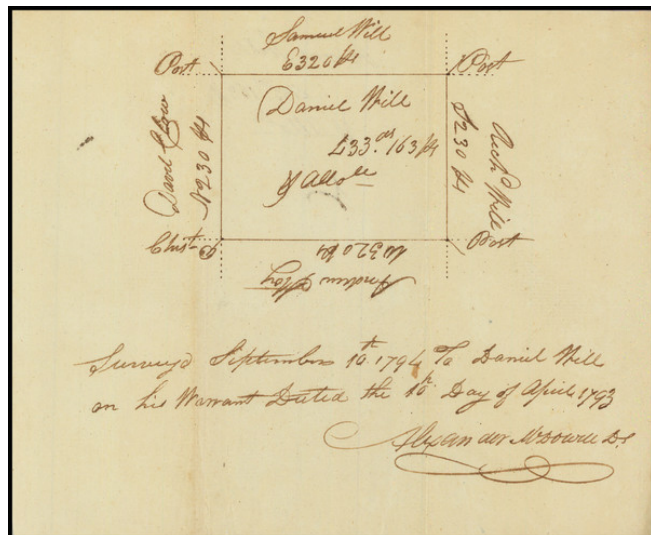 Samuel Will
E 320 ps
Post
Post
Daniel Will
433 as 163 ps
& Allowe
David
N 230 ps
Richd Will
S 230 ps
Chist
Post
W 320 ps
Andrew
Surveyd September 10th 1794 To Daniel Will
on his Warrant Dated the 10th Day of April 1793
Alexander McDowell D.S.